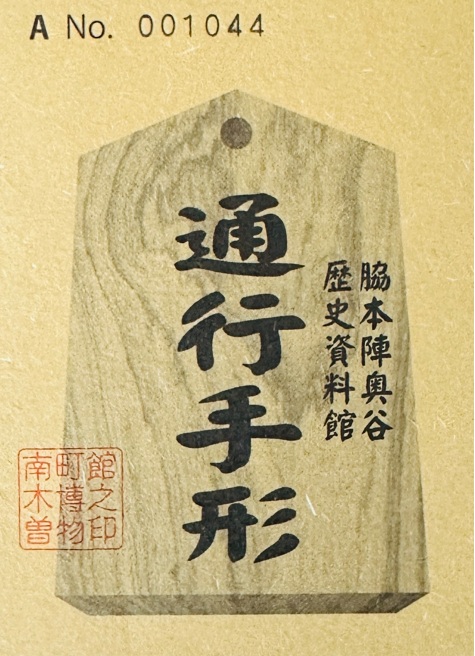 A No. 001044
通行手形
脇本陣奥谷
歴史資料館
南木曽
町博物
館之印